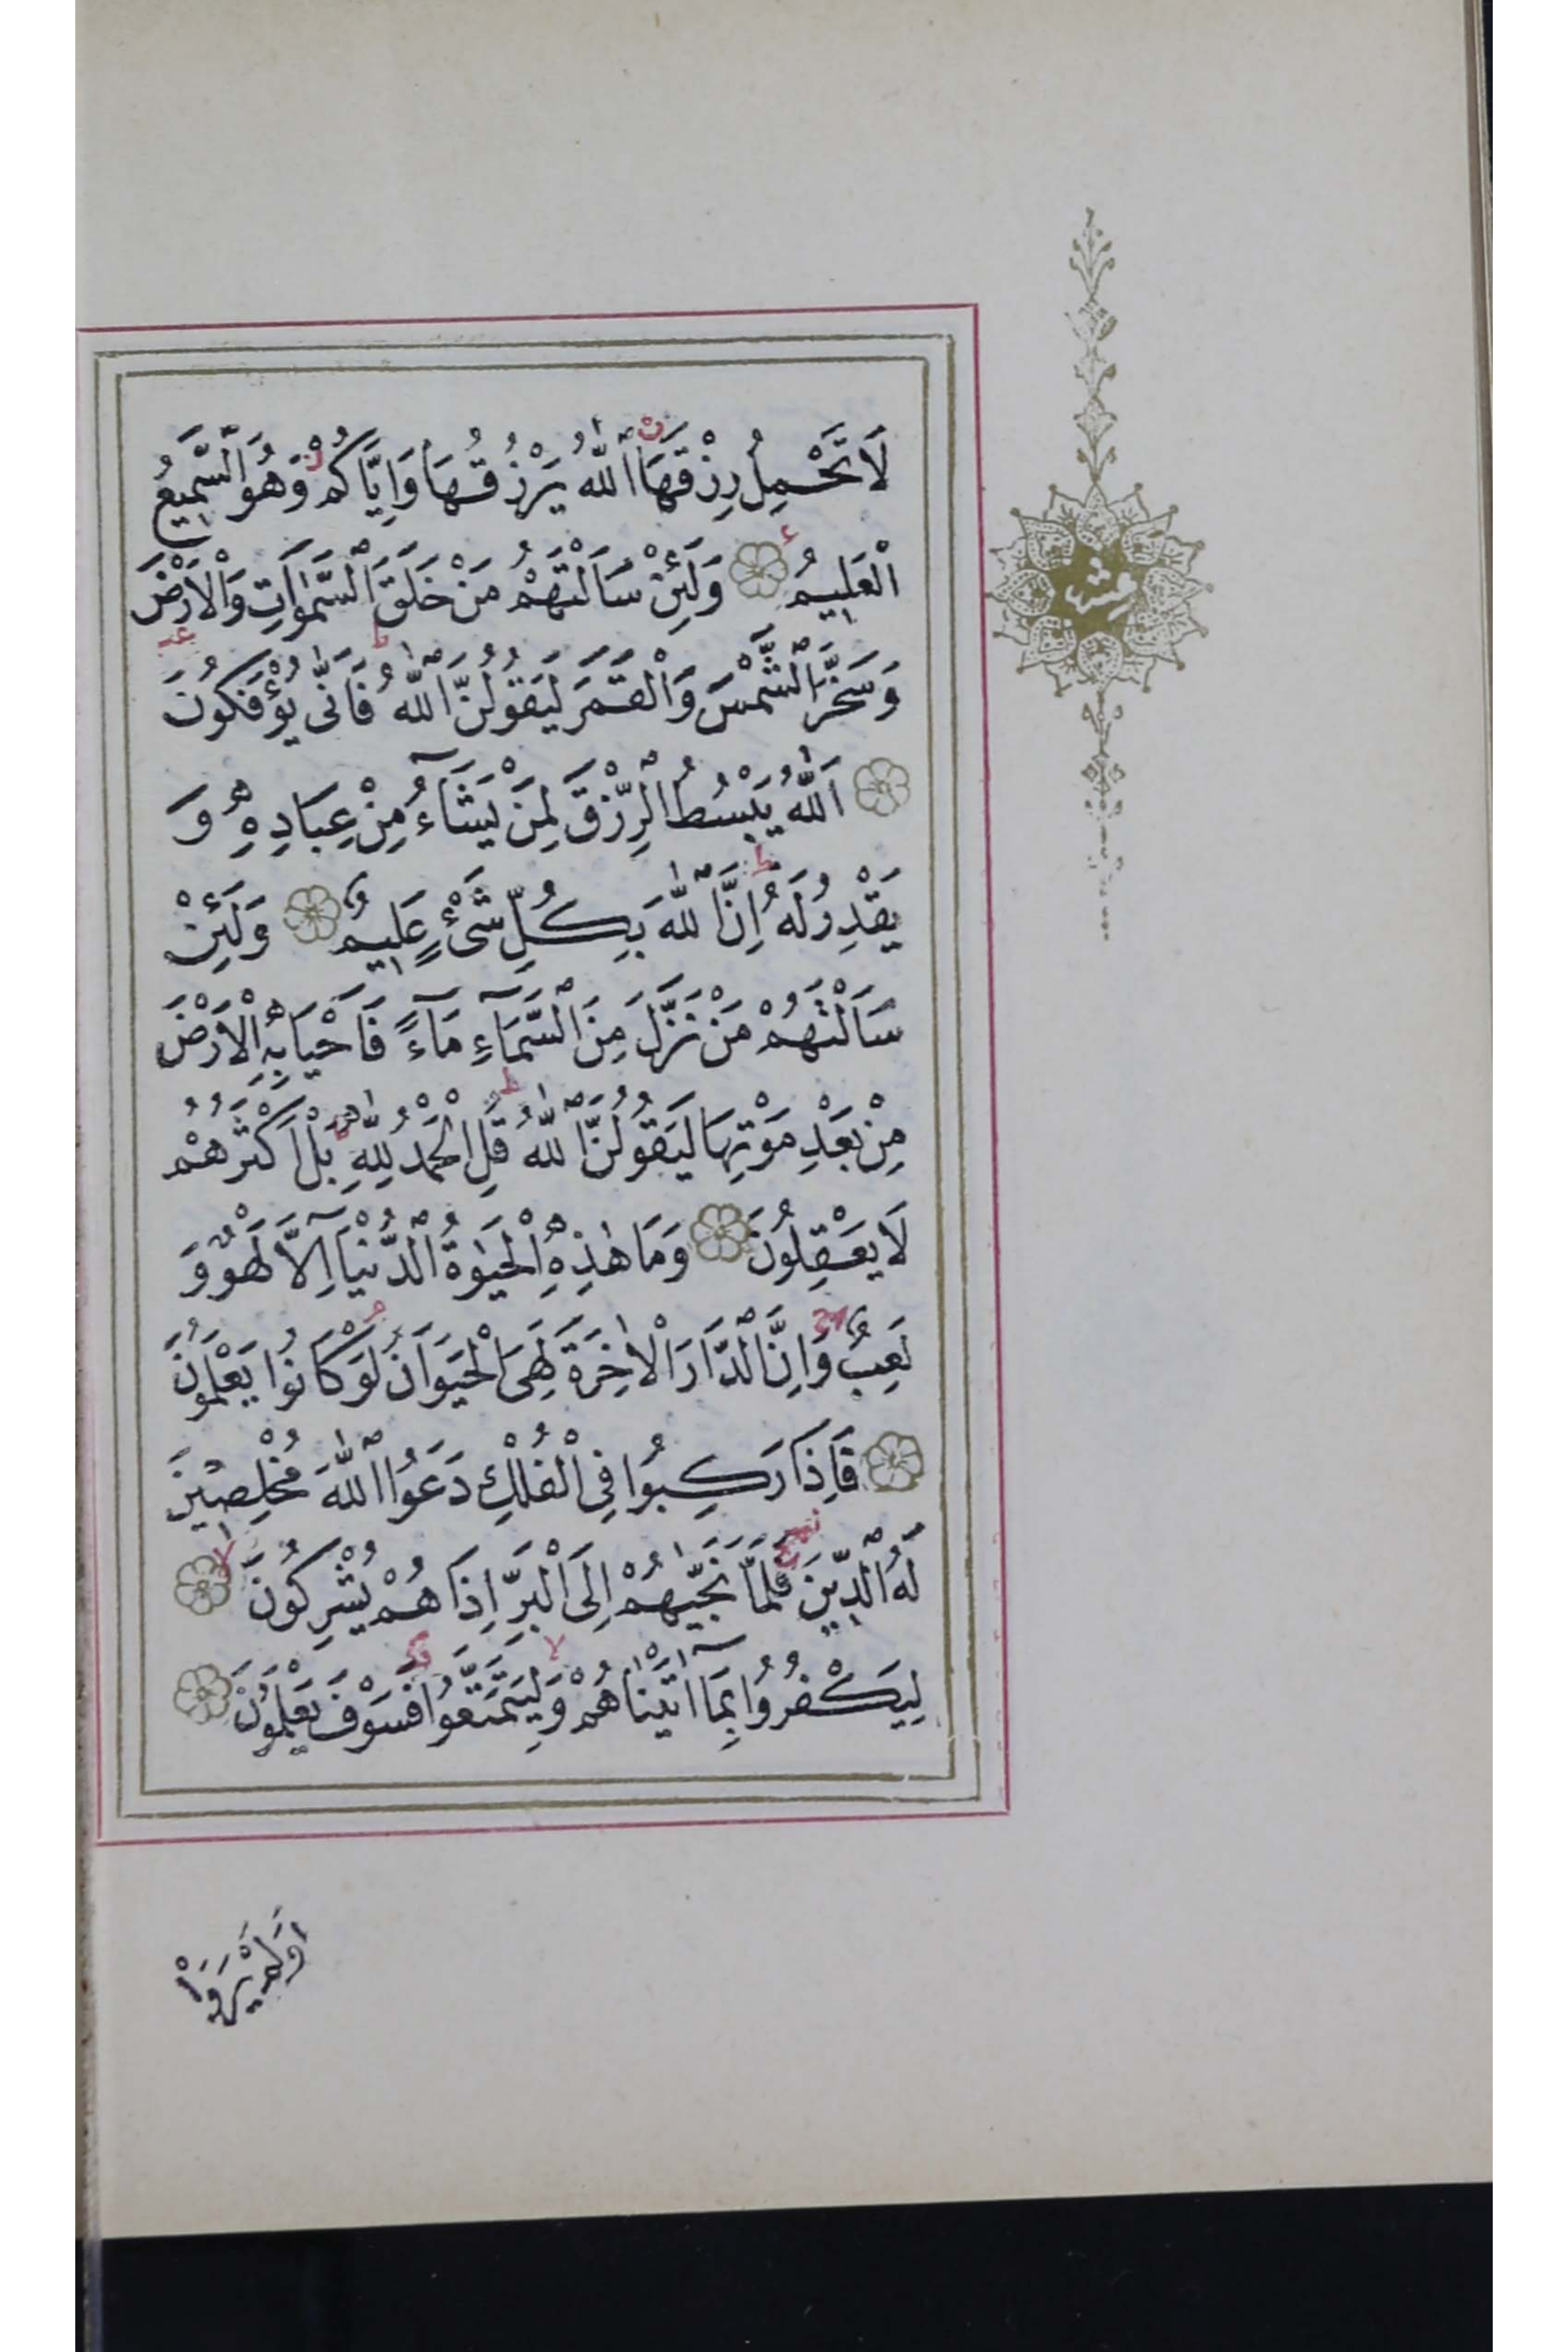 لَا تَحْمِلُ رِزْقَهَا اَللّٰهُ يَرْزُقُهَا وَاِيَّاكُمْ وَهُوَ السَّمِيعُ
الْعَلِيمُ وَلَئِنْ سَاَلْتَهُمْ مَنْ خَلَقَ السَّمٰوَاتِ وَالْاَرْضَ
وَسَخَّرَ الشَّمْسَ وَالْقَمَرَ لَيَقُولُنَّ اللّٰهُ فَاَنّٰى يُؤْفَكُونَ
اَللّٰهُ يَبْسُطُ الرِّزْقَ لِمَنْ يَشَٓاءُ مِنْ عِبَادِهِ وَ
يَقْدِرُ لَهُ اِنَّ اللّٰهَ بِكُلِّ شَىْءٍ عَلِيمٌ وَلَئِنْ
سَاَلْتَهُمْ مَنْ نَزَّلَ مِنَ السَّمَٓاءِ مَٓاءً فَاَحْيَا بِهِ الْاَرْضَ
مِنْ بَعْدِ مَوْتِهَا لَيَقُولُنَّ اللّٰهُ قُلِ الْحَمْدُ لِلّٰهِ بَلْ اَكْثَرُهُمْ
لَا يَعْقِلُونَ وَمَا هٰذِهِ الْحَيٰوةُ الدُّنْيَٓا اِلَّا لَهْوٌ وَ
لَعِبٌ وَاِنَّ الدَّارَ الْاٰخِرَةَ لَهِىَ الْحَيَوَانُ لَوْ كَانُوا يَعْلَمُونَ
فَاِذَا رَكِبُوا فِى الْفُلْكِ دَعَوُا اللّٰهَ مُخْلِصِينَ
لَهُ الدِّينَ فَلَمَّا نَجّٰيهُمْ اِلَى الْبَرِّ اِذَا هُمْ يُشْرِكُونَ
لِيَكْفُرُوا بِمَٓا اٰتَيْنَاهُمْ وَلِيَتَمَتَّعُوا فَسَوْفَ يَعْلَمُونَ
اَوَلَمْ يَرَوْا